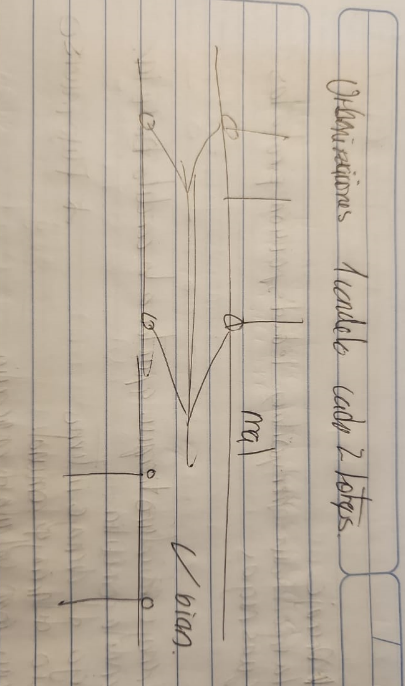 Urbanizaciones 1 candelo cada 2 lotes.
mal
bien.